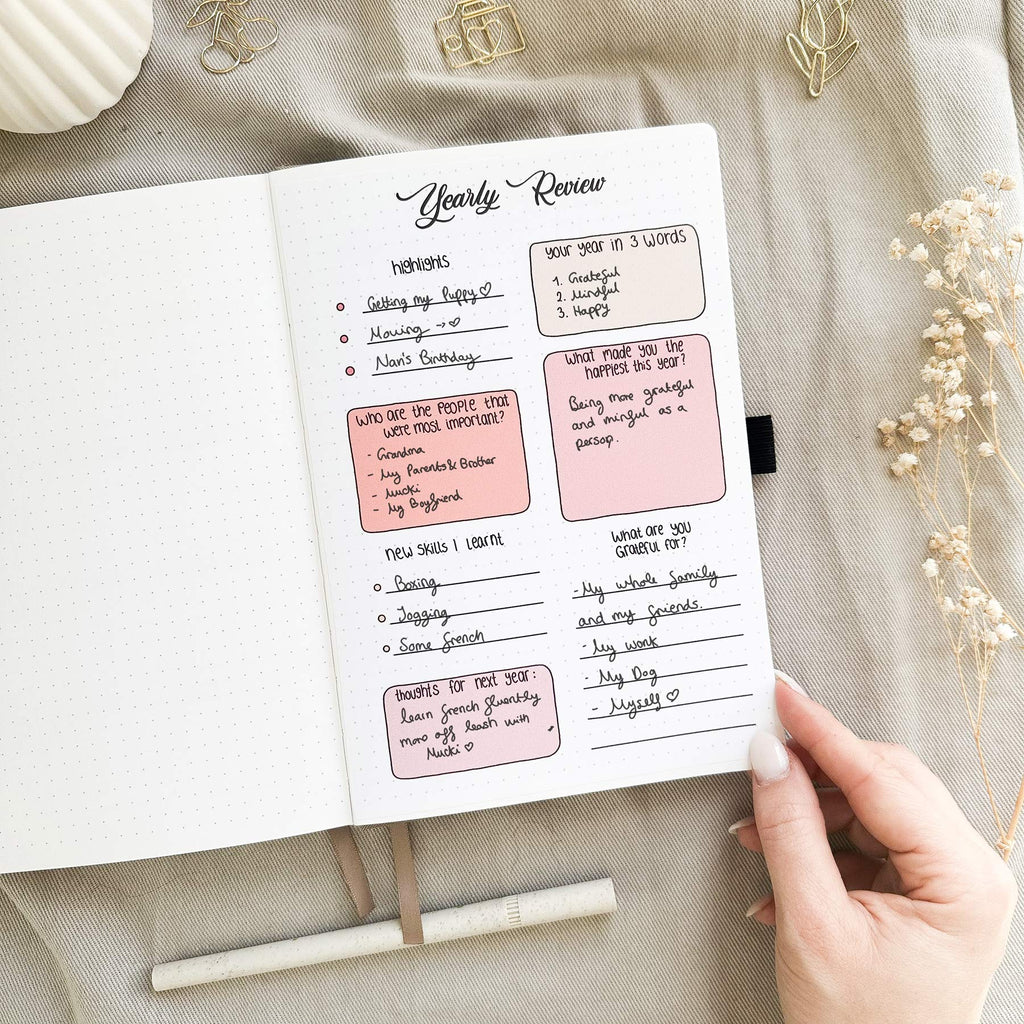 Yearly Review
highlights
Getting my Puppy ♡
Moving -> ♡
Nan's Birthday
Your year in 3 words
1. Grateful
2. Mindful
3. Happy
Who are the people that
were most important?
- Grandma
- My Parents & Brother
- Mucki
- My Boyfriend
What made you the
happiest this year?
Being more grateful
and minful as a
person.
New skills I learnt
Boxing
Jogging
Some french
What are you
Grateful for?
- My whole family
and my friends.
- My work
- My Dog
- Myself ♡
thoughts for next year:
learn french fluently
more off leash with
Mucki ♡